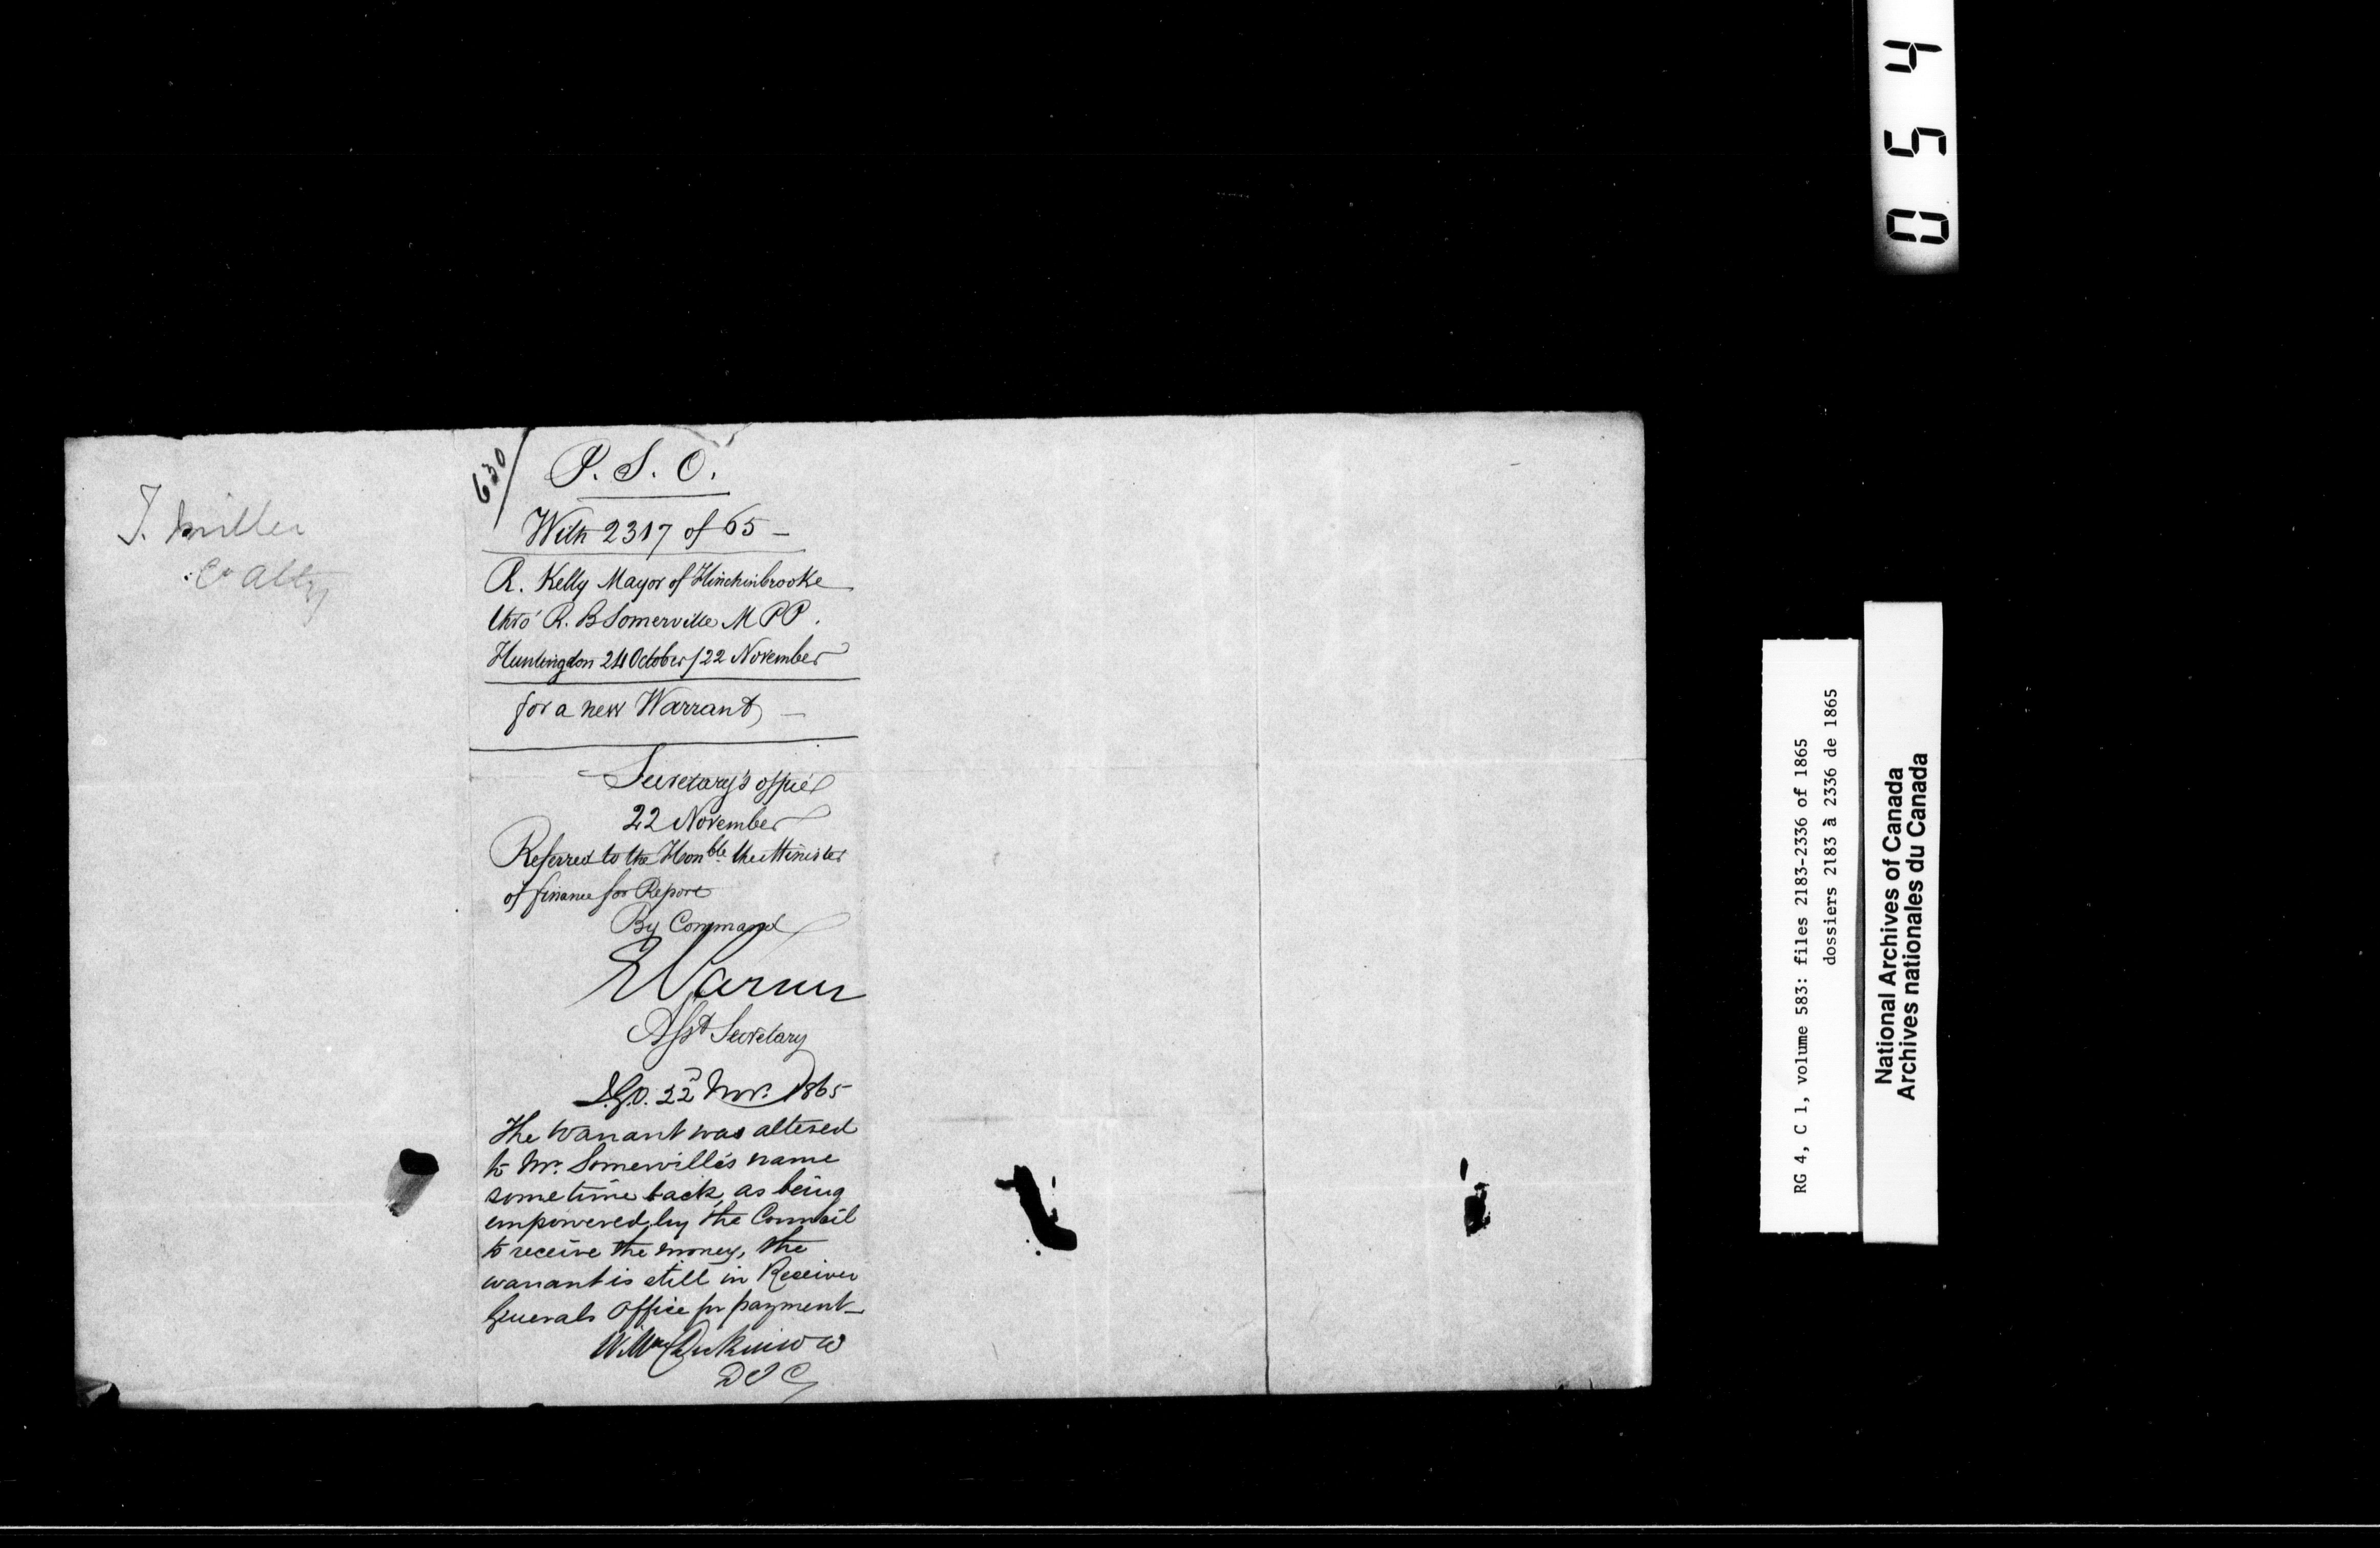 T. Miller
Co atty
630
P. S. O.
With 2317 of 65 —
R. Kelly Mayor of Hinchinbrooke
thro' R. B Somerville M P P.
Huntingdon 24 October / 22 November
for a new Warrant —
Secretary's office
22 November
Referred to the Honble. the Minister
of finance for Report
By Command
Asst Secretary
22d Nov. 1865
The warrant was altered
to Mr. Somerville's name
sometime back, as being
empowered by the Council
to receive the money, the
warrant is still in Receiver
Generals Office for payment—
0 5 4
RG 4, C 1, volume 583: files 2183-2336 of 1865
dossiers 2183 à 2336 de 1865
National Archives of Canada
Archives nationales du Canada